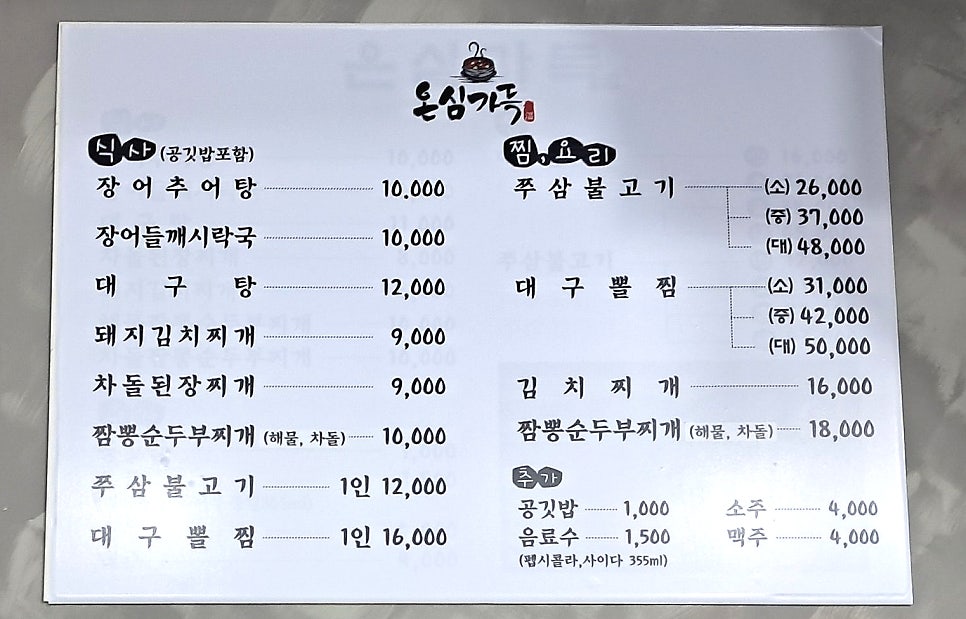 온심가득
식사 (공깃밥포함)
장어추어탕 10,000
장어들깨시락국 10,000
대구탕 12,000
돼지김치찌개 9,000
차돌된장찌개 9,000
짬뽕순두부찌개 (해물, 차돌) 10,000
쭈삼불고기 1인 12,000
대구뽈찜 1인 16,000
찜,요리
쭈삼불고기 (소) 26,000
(중) 37,000
(대) 48,000
대구뽈찜 (소) 31,000
(중) 42,000
(대) 50,000
김치찌개 16,000
짬뽕순두부찌개 (해물, 차돌) 18,000
추가
공깃밥 1,000 소주 4,000
음료수 1,500 맥주 4,000
(펩시콜라,사이다 355ml)